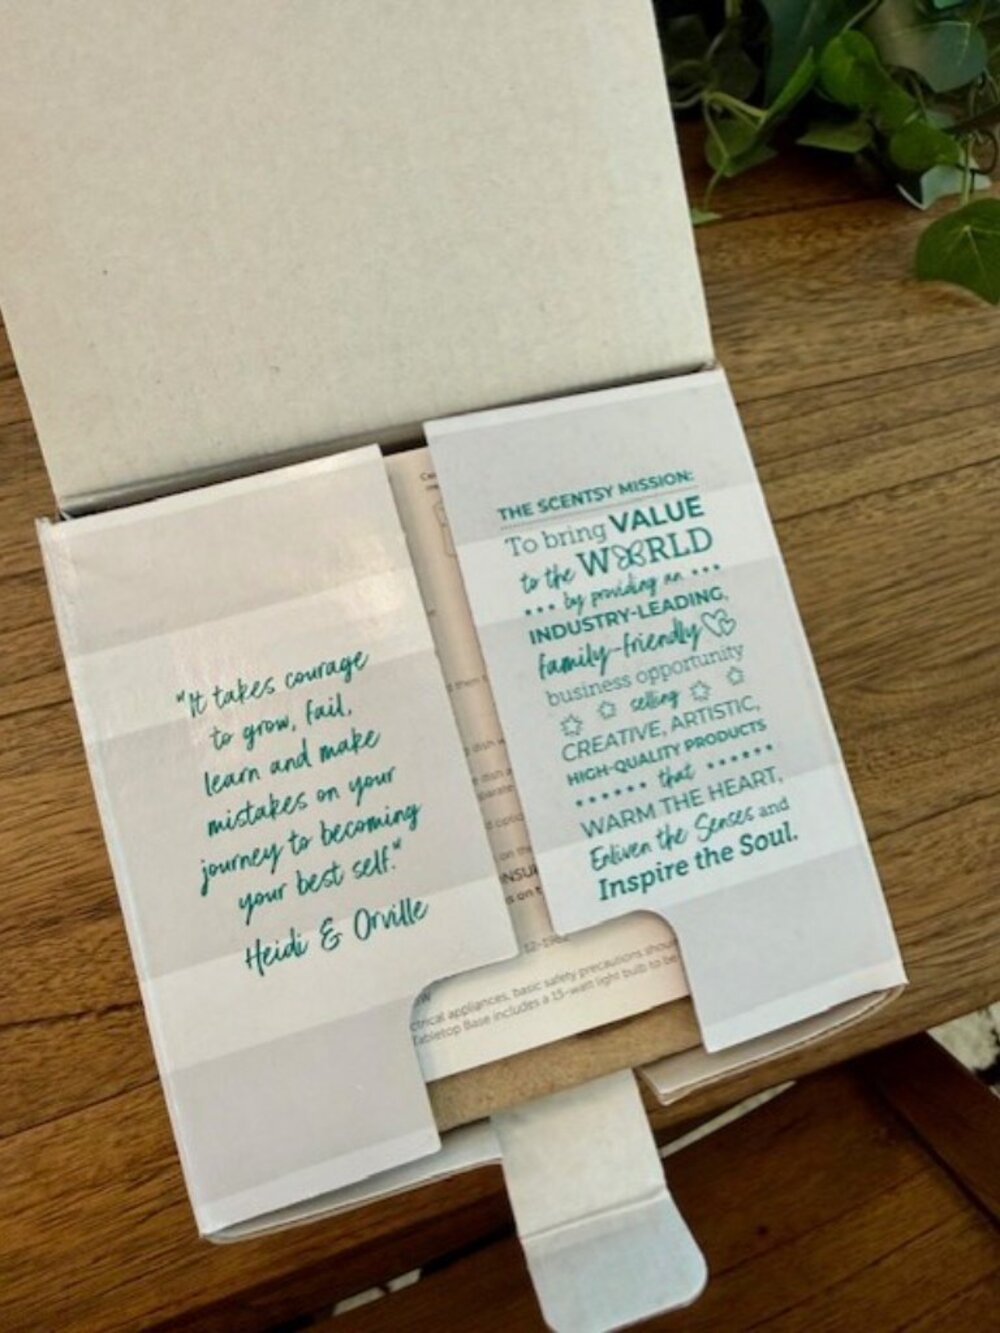 "It takes courage
to grow, fail,
learn and make
mistakes on your
journey to becoming
your best self."
Heidi & Orville
THE SCENTSY MISSION:
To bring VALUE
to the WORLD
by providing an
INDUSTRY-LEADING,
family-friendly
business opportunity
selling
CREATIVE, ARTISTIC,
HIGH-QUALITY PRODUCTS
that
WARM THE HEART,
Enliven the Senses and
Inspire the Soul.
on the
appliances, basic safety precautions
Tabletop Base includes a 15-watt light bulb to be